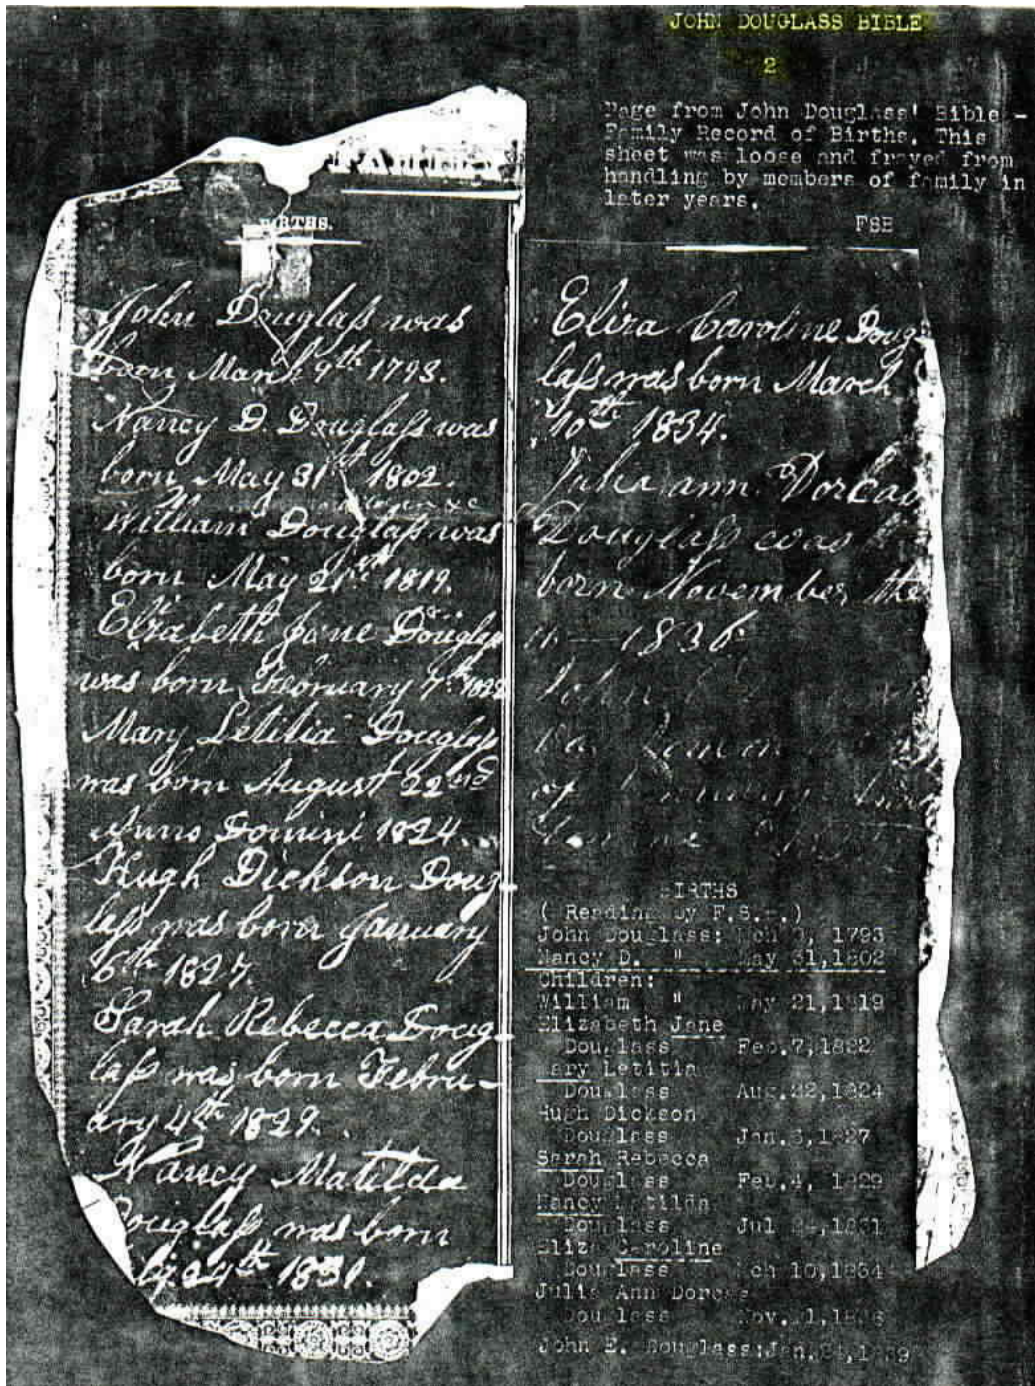 JOHN DOUGLASS BIBLE
2
Page from John Douglass' Bible -
Family Record of Births. This
sheet was loose and frayed from
handling by members of family in
later years.
BIRTHS.
John Douglaſs was
born March 9th 1793.
Nancy D. Douglaſs was
born May 31st 1802.
William Douglaſs was
born May 21st 1819.
Elizabeth Jane Douglaſs
was born February 7th 1822
Mary Letitia Douglaſs
was born August 22nd
Anno Domini 1824.
Hugh Dickson Doug-
laſs was born January
6th 1827.
Sarah Rebecca Doug-
laſs was born Febru-
ary 4th 1829.
Nancy Matilda
Douglaſs was born
24th 1831.
Eliza Caroline Doug-
laſs was born March
10th 1834.
Julia ann Dorcas
Douglaſs was
born November the
1836
John
BIRTHS
( Reading by F.S.
John Douglass: Mch 9, 1793
Nancy D. " May 31,1802
Children:
William " May 21,1819
Elizabeth Jane
Douglass Feb.7,1822
Mary Letitia
Douglass Aug.22,1824
Hugh Dickson
Douglass Jan.6,1827
Sarah Rebecca
Douglass Feb.4, 1829
Nancy Matilda
Douglass Jul 24,1831
Eliza Caroline
Douglass Mch 10,1834
Julia Ann Dorcas
Douglass Nov.
John E. Douglass:Jan.